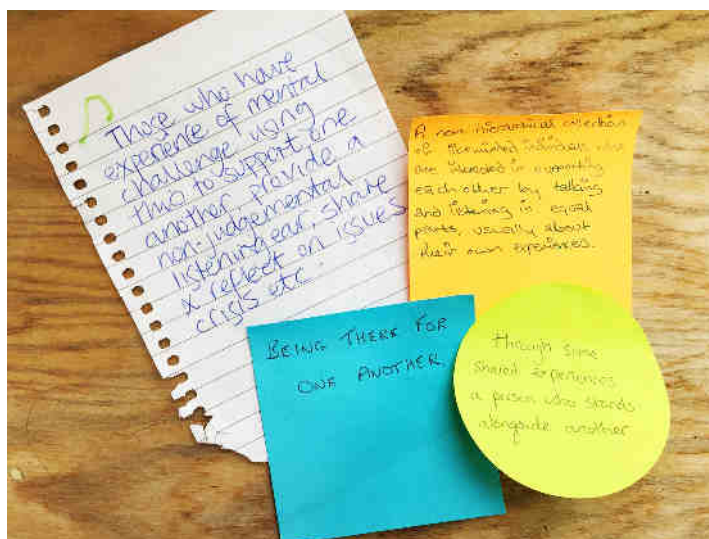 Those who have
experience of mental
challenge using
this to support one
another, provide a
non-judgemental
listening ear, share
& reflect on issues
crisis etc.
A non-hierarchical collection
of likeminded individuals who
are interested in supporting
each other by talking
and listening in equal
parts, usually about
their own experiences.
BEING THERE FOR
ONE ANOTHER
through some
shared experiences
a person who stands
alongside another